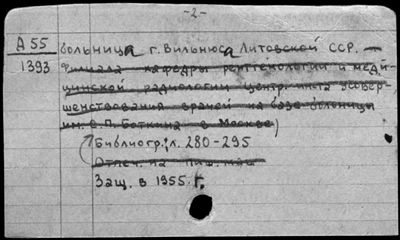 -2-
А 55 больница г. Вильнюса Литовской ССР. —
1393 Филиала кафедры рентгенологии и меди-
цинской радиологии Центр. ин-та усовер-
шенствования врачей на базе больницы
им. С.П. Боткина в Москве)
(Библиогр.: л. 280-295
Отпеч. на пиш. маш
Защ. в 1955 г.